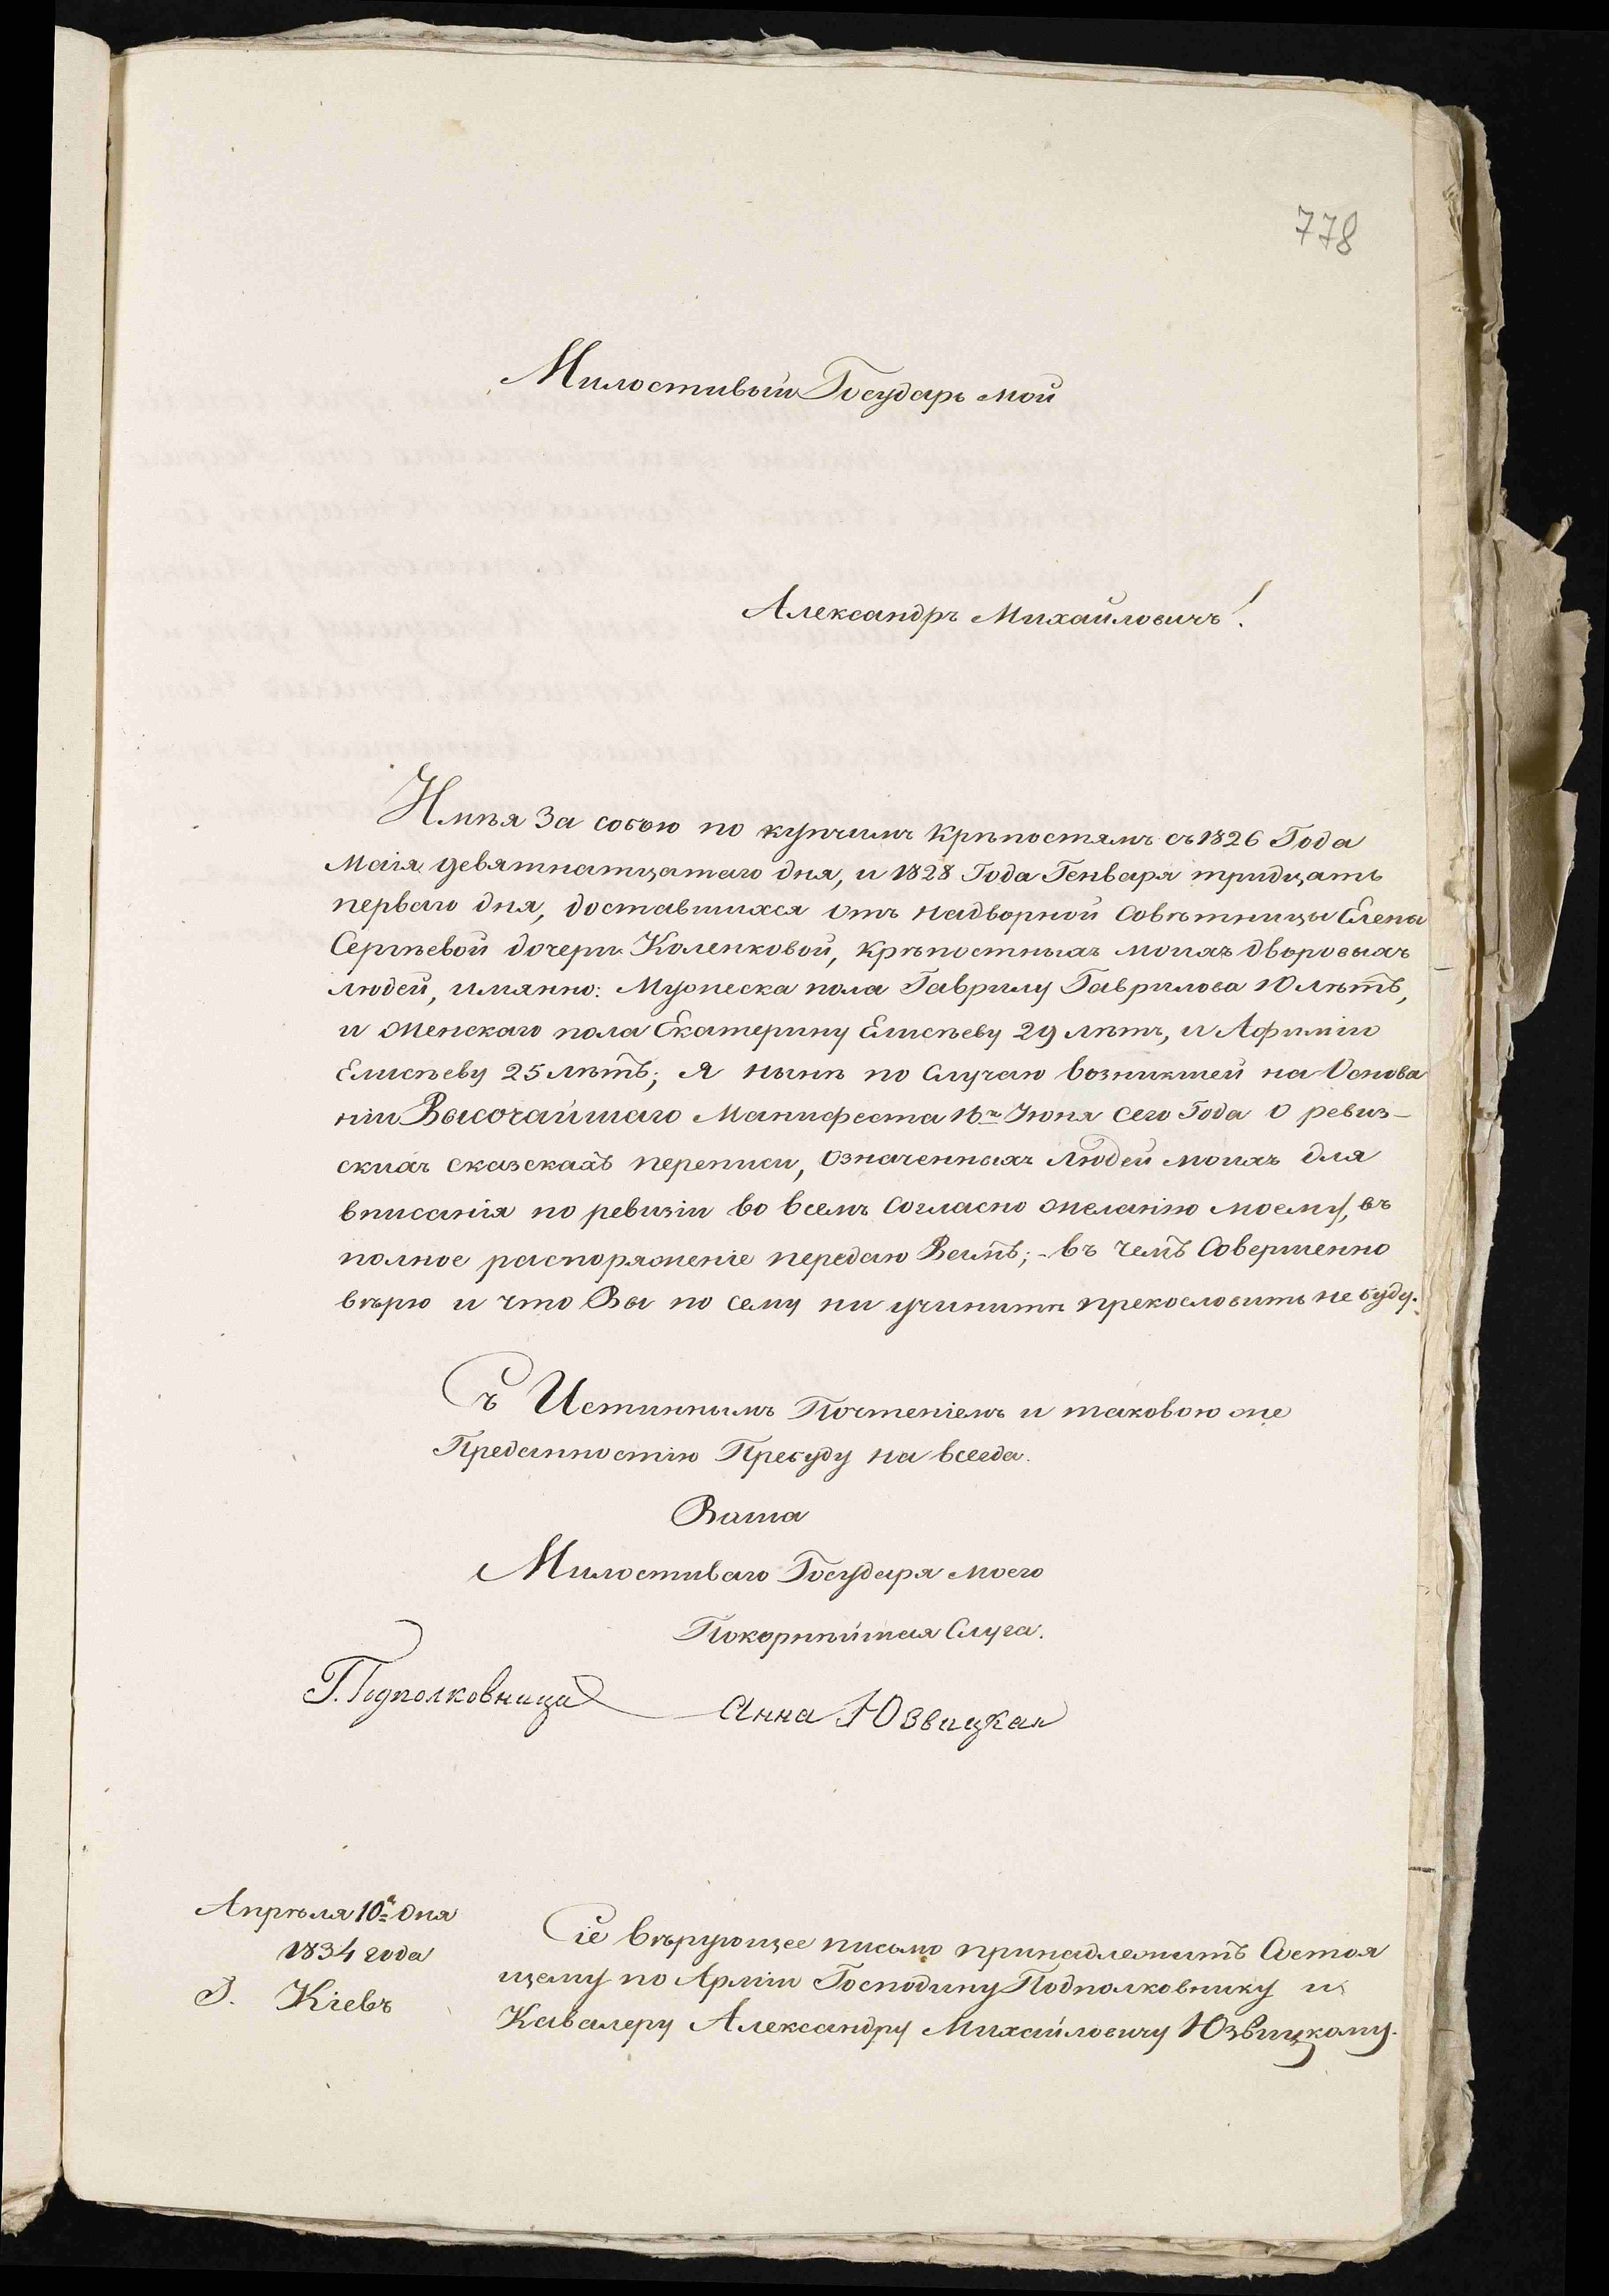 778
Милостивый Государь мой
Александръ Михайловичъ!
Имѣя За собою по купчимъ Крѣпостямъ съ 1826 Года
Маія девятнатцатаго дня, и 1828 Года Генваря тридцать
перваго дня, доставшихся отъ надворной Совѣтницы Елены
Сергѣевой дочери Коленковой, Крѣпостныхъ моихъ дворовыхъ
людей, имянно: Мужеска пола Гаврилу Гаврилова 10 лѣтъ,
и женскаго пола Екатерину Елисѣеву 29 лѣтъ, и Афимію
Елисѣеву 25 лѣтъ; я нынѣ по Случаю возникшей на Основа
ніи Высочайшаго Манифеста 16го Іюня сего Года о ревиз-
скихъ сказскахъ переписи, означенныхъ Людей моихъ для
вписанія по ревизіи во всемъ Согласно желанію моему, въ
полное распоряженіе передаю Вамъ; - въ чемъ Совершенно
вѣрю и что Вы по сему ни учините прекословить не буду.
Съ Истиннымъ Почтеніемъ и таковою же
Преданностію Пребуду на всегда.
Ваша
Милостиваго Государя моего
Покорнѣйшая Слуга.
Г. Подполковница Анна Юзвицкая
Апрѣля 10го дня
1834 года
Г. Кіевъ
Сіе вѣрующее писмо принадлежитъ Состоя
щему по Арміи Господину Подполковнику и
Кавалеру Александру Михайловичу Юзвицкому.